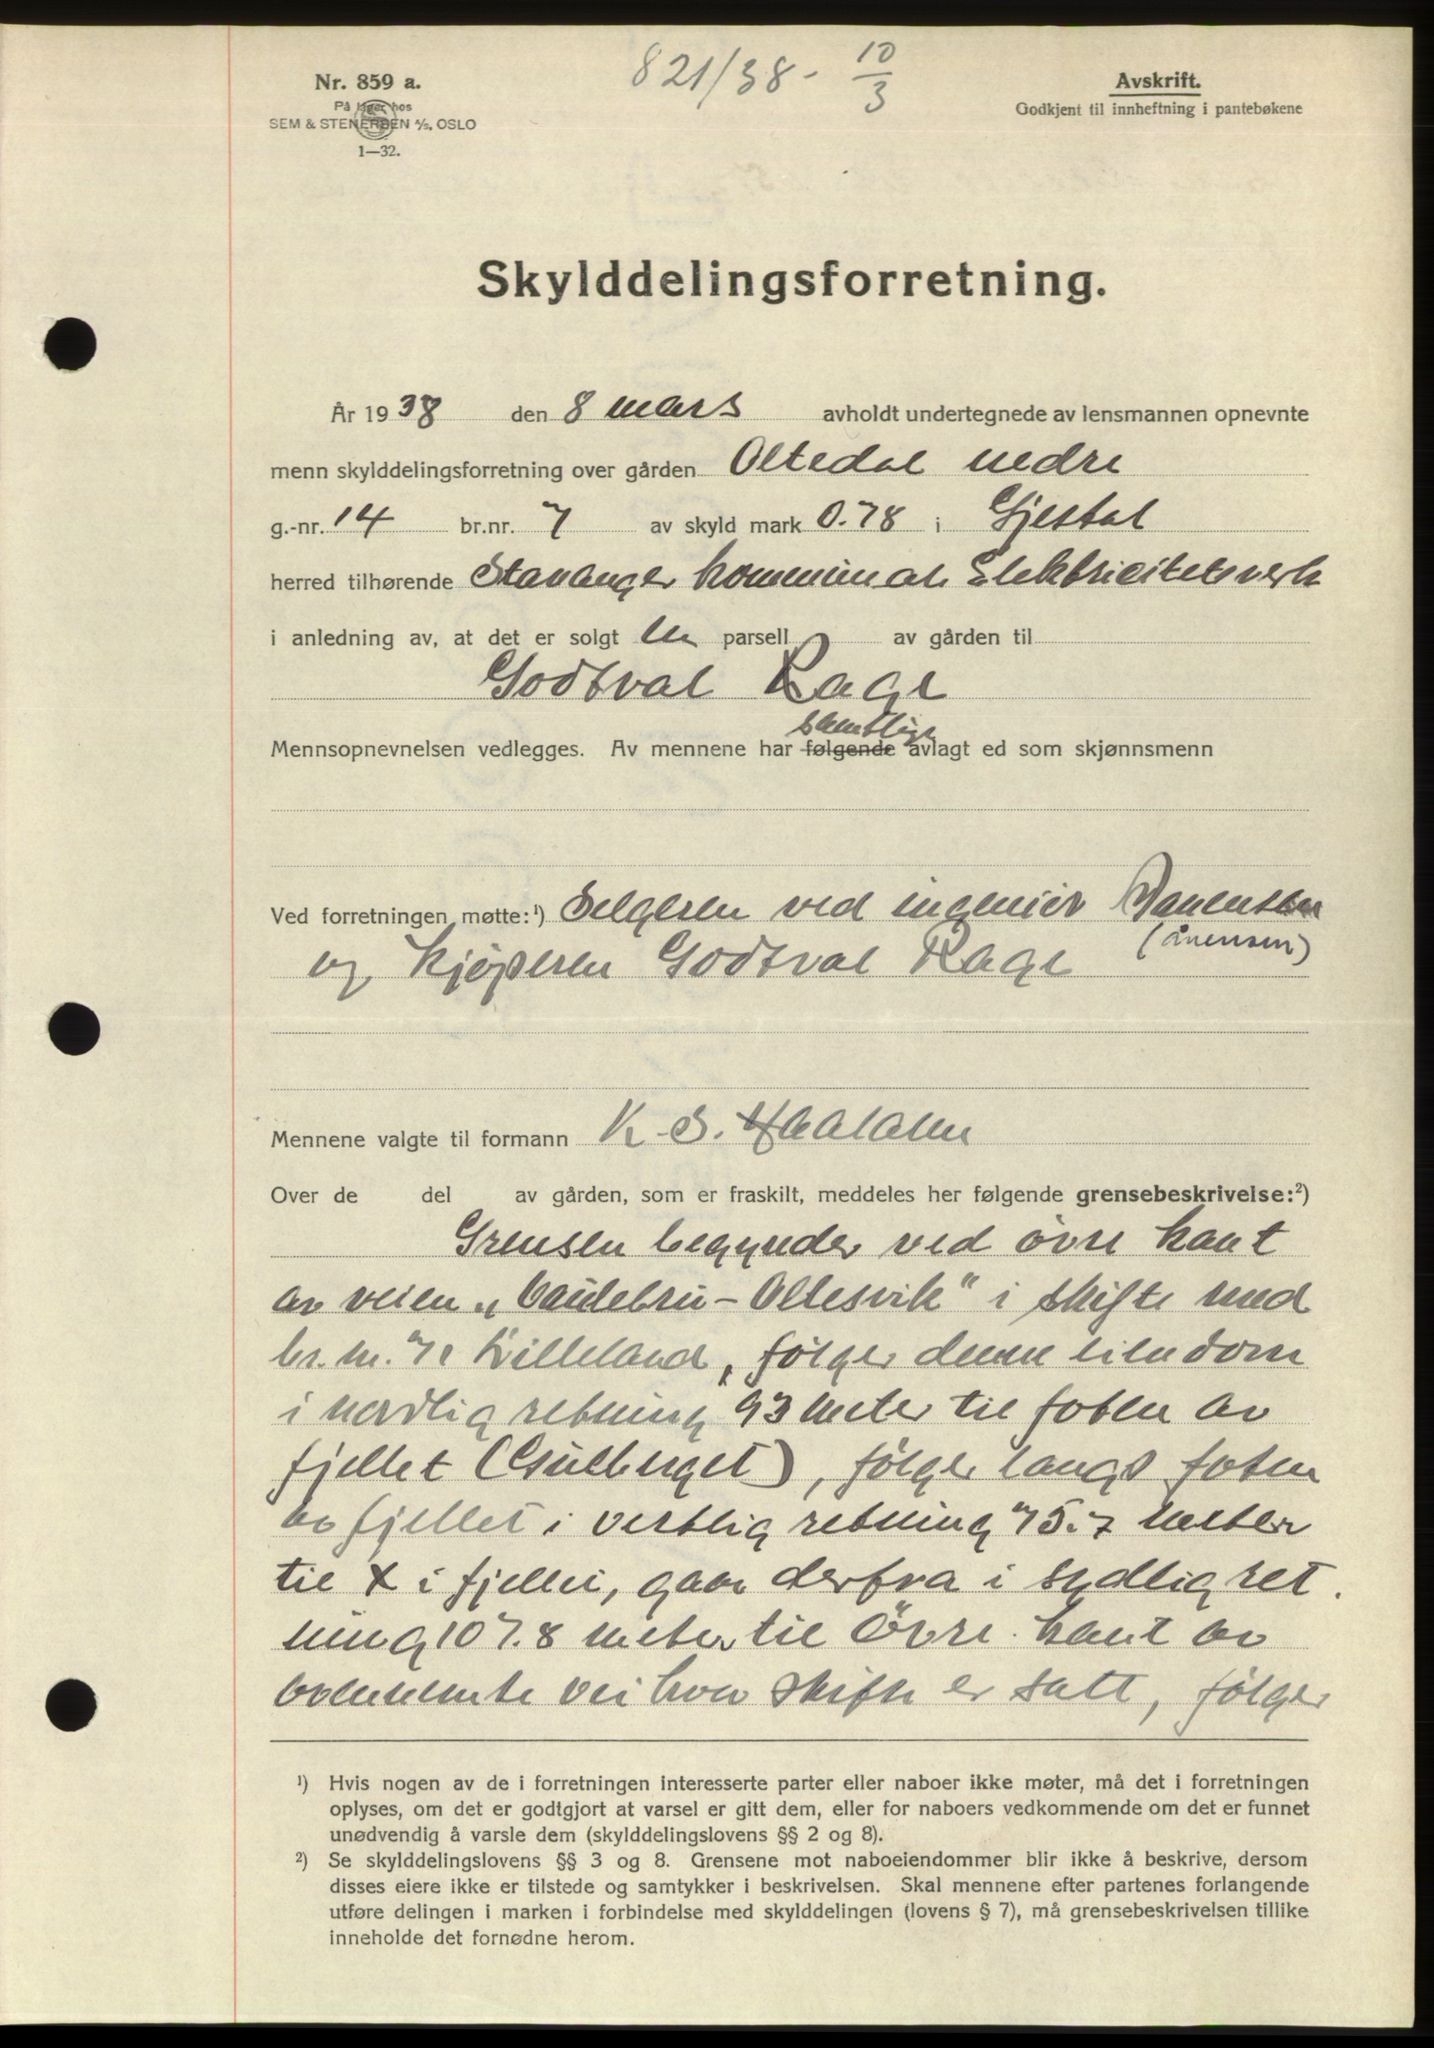 821/38 - 10/3
Nr. 859 a.
På lager hos
SEM & STENERSEN A/S, OSLO
1—32.
Avskrift.
Godkjent til innheftning i pantebøkene
Skylddelingsforretning.
År 1938 den 8 mars avholdt undertegnede av lensmannen opnevnte
menn skylddelingsforretning over gården Oltedal nedre
g.-nr. 14 br.nr. 7 av skyld mark 0.78 i Gjestal
herred tilhørende Stavanger kommunale Elektricitetsverk
i anledning av, at det er solgt en parsell av gården til
Godtval Rage
samtlige
Mennsopnevnelsen vedlegges. Av mennene har følgende avlagt ed som skjønnsmenn
Ved forretningen møtte:¹) Selgeren ved ingeniør
(Ånensen)
og kjøperen Godtval Rage
Mennene valgte til formann K. S. Haaland
Over de del av gården, som er fraskilt, meddeles her følgende grensebeskrivelse:²)
Grensen begynder ved øvre kant
av veien „Caulebru - Oltesvik" i skifte med
br. nr. 7 Lilleland, følger denne eiendom
i nordlig retning 93 meter til foten av
fjellet (Gulberget), følger langs foten
av fjellet i vestlig retning 75.7 meter
til X i fjellet, gaar derfra i sydlig ret.
ning 107.8 meter til øvre kant av
ovennemnte vei hvor skifte er satt, følger
¹) Hvis nogen av de i forretningen interesserte parter eller naboer ikke møter, må det i forretningen
oplyses, om det er godtgjort at varsel er gitt dem, eller for naboers vedkommende om det er funnet
unødvendig å varsle dem (skylddelingslovens §§ 2 og 8).
²) Se skylddelingslovens §§ 3 og 8. Grensene mot naboeiendommer blir ikke å beskrive, dersom
disses eiere ikke er tilstede og samtykker i beskrivelsen. Skal mennene efter partenes forlangende
utføre delingen i marken i forbindelse med skylddelingen (lovens § 7), må grensebeskrivelsen tillike
inneholde det fornødne herom.